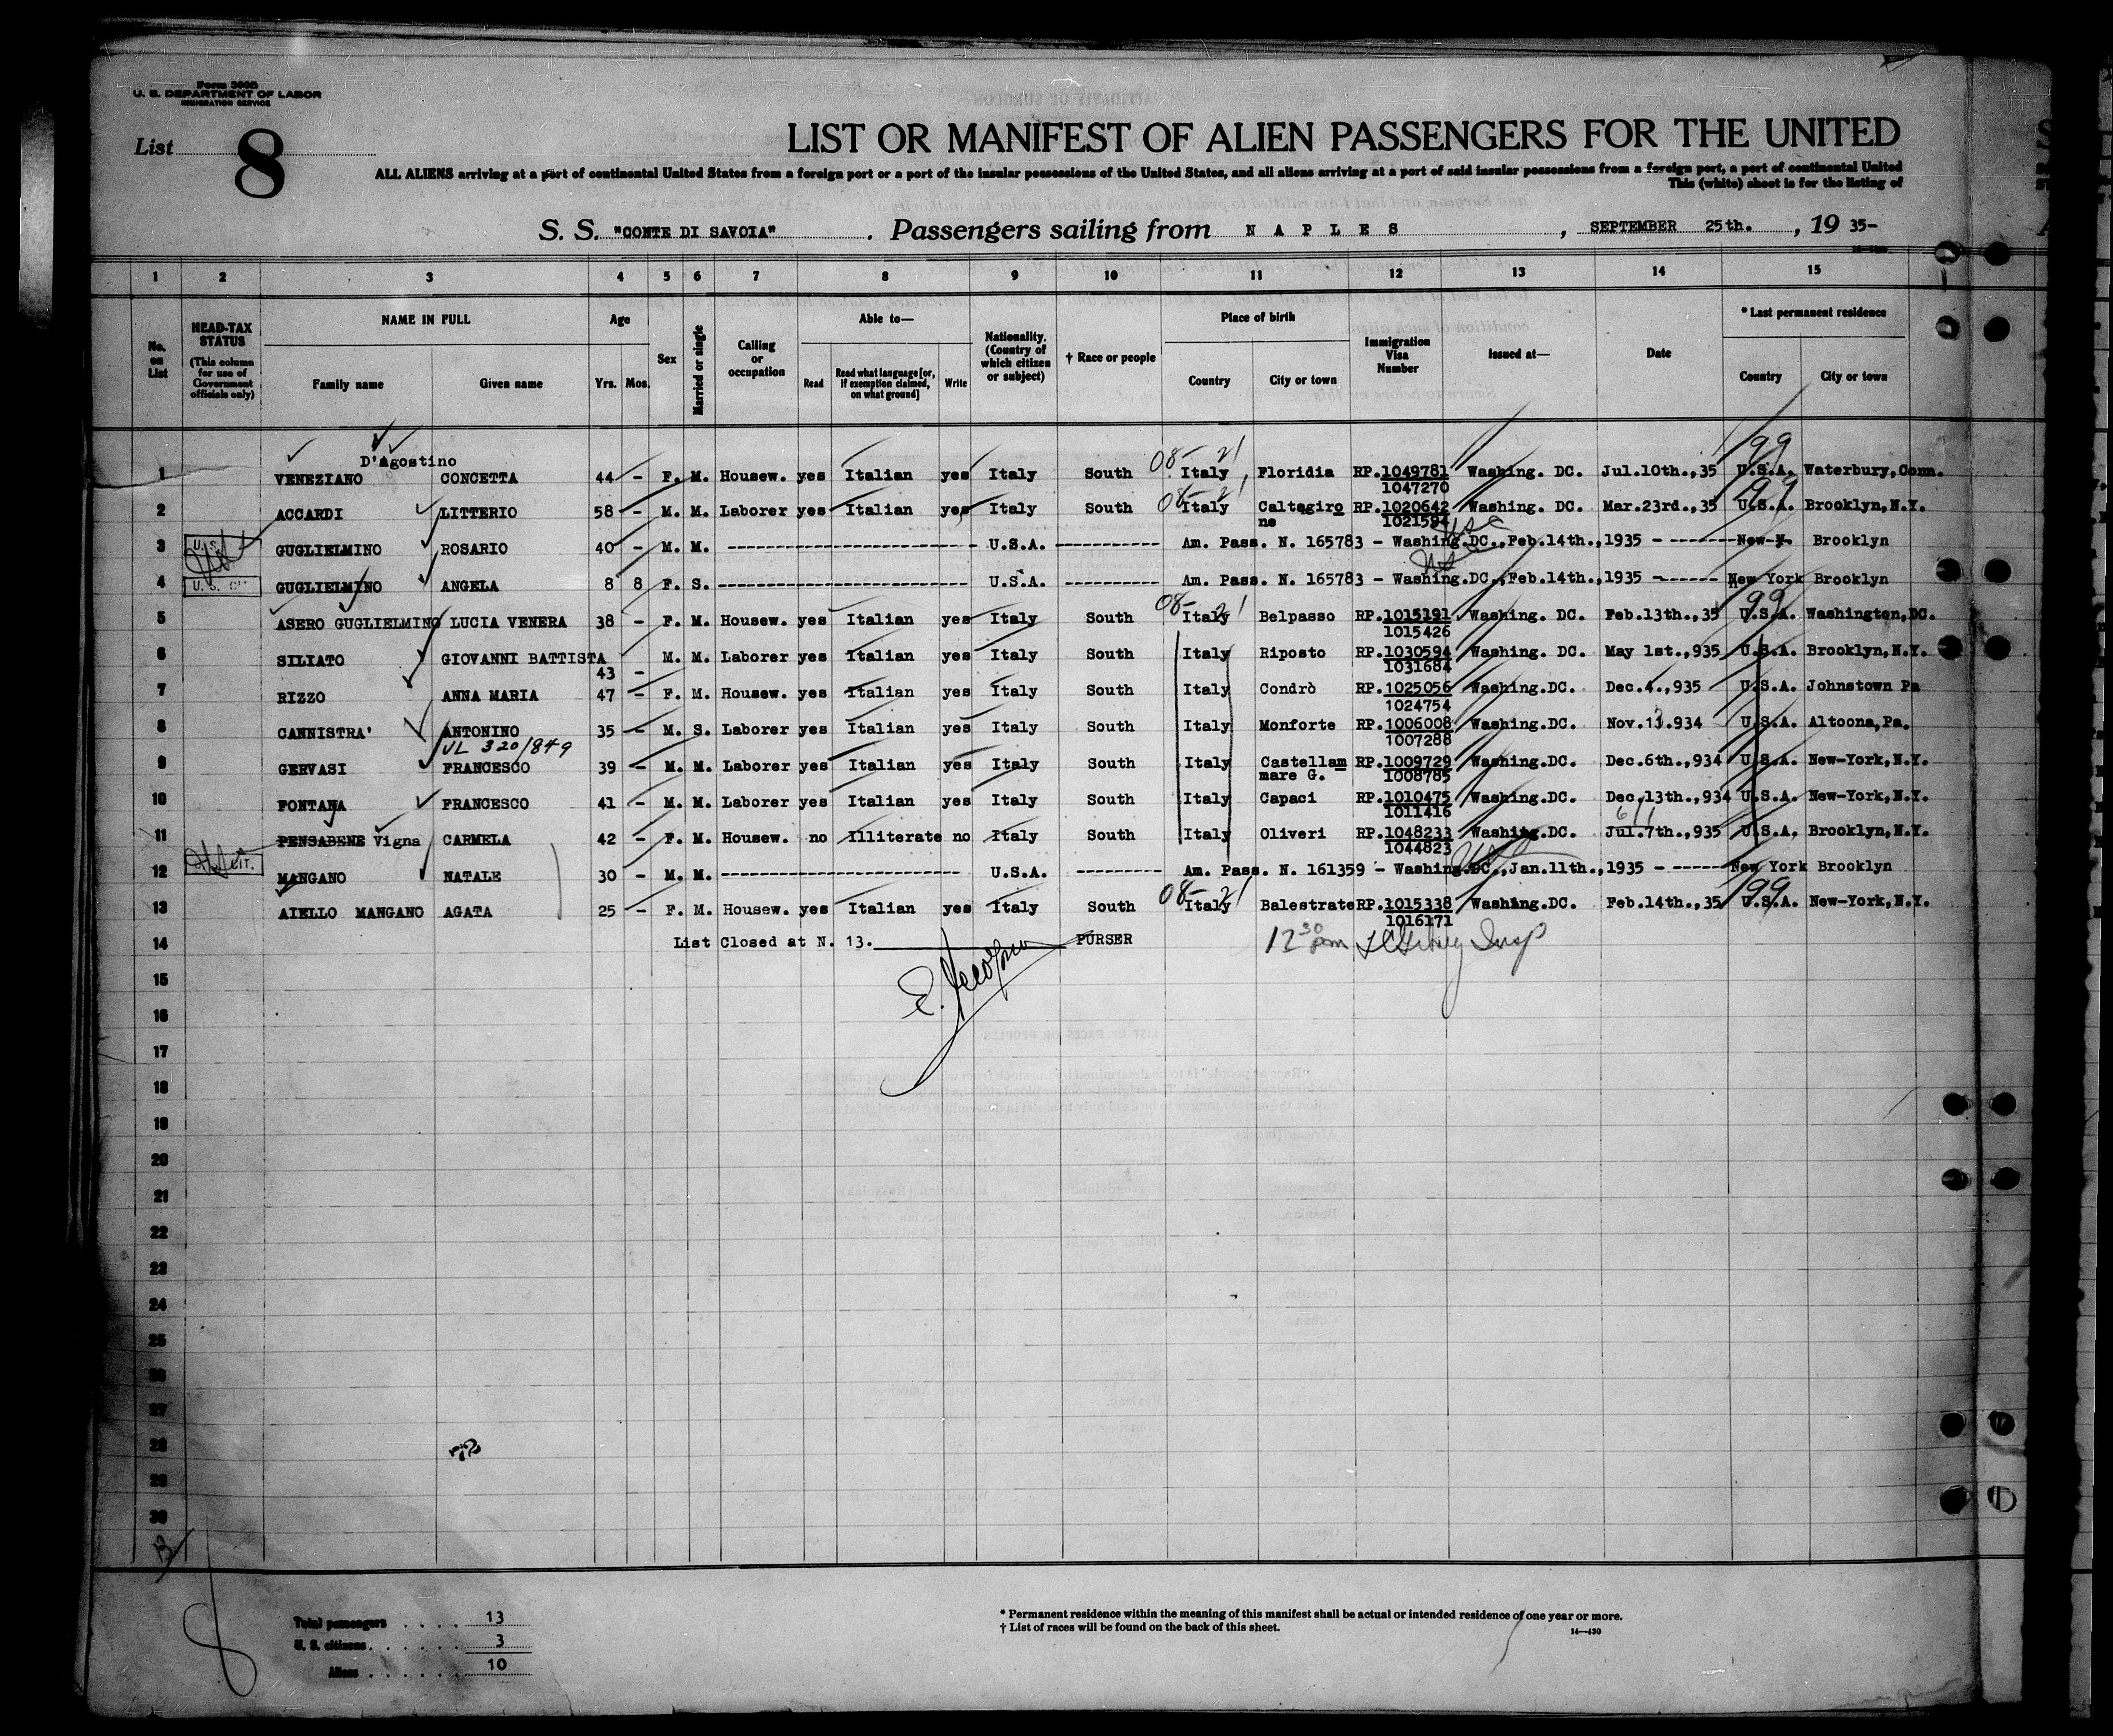 Form 500B
U. S. DEPARTMENT OF LABOR
IMMIGRATION SERVICE
List 8
LIST OR MANIFEST OF ALIEN PASSENGERS FOR THE UNITED
ALL ALIENS arriving at a port of continental United States from a foreign port or a port of the insular possessions of the United States, and all aliens arriving at a port of said insular possessions from a foreign port, a port of continental United
This (white) sheet is for the listing of
S. S. "CONTE DI SAVOIA" . Passengers sailing from N A P L E S , SEPTEMBER 25th. , 19 35-
1 2 3 4 5 6 7 8 9 10 11 12 13 14 15
No. on List
HEAD-TAX STATUS (This column for use of Government officials only)
NAME IN FULL
Family name Given name
Age
Yrs. Mos.
Sex
Married or single
Calling or occupation
Able to—
Read Read what language [or, if exemption claimed, on what ground] Write
Nationality. (Country of which citizen or subject)
† Race or people
Place of birth
Country City or town
Immigration Visa Number
Issued at—
Date
* Last permanent residence
Country City or town
D'Agostino 08-21 199
1 VENEZIANO CONCETTA 44 - F. M. Housew. yes Italian yes Italy South Italy Floridia RP.1049781 Washing. DC. Jul.10th.,35 U.S.A. Waterbury,Conn.
1047270
08-21 199
2 ACCARDI LITTERIO 58 - M. M. Laborer yes Italian yes Italy South Italy Caltagiro RP.1020642 Washing. DC. Mar.23rd.,35 U.S.A. Brooklyn,N.Y.
ne 1021594
USC
3 U.S. GUGLIELMINO ROSARIO 40 - M. M. ---------- U.S.A. ---------- Am. Pass. N. 165783 - Washing.DC.,Feb.14th.,1935 - ------ New-Y. Brooklyn
4 U. S. CIT GUGLIELMINO ANGELA 8 8 F. S. ---------- U.S.A. ---------- Am. Pass. N. 165783 - Washing.DC.,Feb.14th.,1935 ------- New York Brooklyn
08-21 199
5 ASERO GUGLIELMINO LUCIA VENERA 38 - F. M. Housew. yes Italian yes Italy South Italy Belpasso RP.1015191 Washing. DC. Feb.13th.,35 U.S.A. Washington,DC.
1015426
6 SILIATO GIOVANNI BATTISTA M. M. Laborer yes Italian yes Italy South Italy Riposto RP.1030594 Washing. DC. May 1st.,935 U.S.A. Brooklyn,N.Y.
43 - 1031684
7 RIZZO ANNA MARIA 47 - F. M. Housew. yes Italian yes Italy South Italy Condrò RP.1025056 Washing.DC. Dec.4.,935 U.S.A. Johnstown Pa
1024754
8 CANNISTRA' ANTONINO 35 - M. S. Laborer yes Italian yes Italy South Italy Monforte RP.1006008 Washing.DC. Nov.13.934 U.S.A. Altoona,Pa.
VL 320/849 1007288
9 GERVASI FRANCESCO 39 - M. M. Laborer yes Italian yes Italy South Italy Castellam RP.1009729 Washing.DC. Dec.6th.,934 U.S.A. New-York,N.Y.
mare G. 1008785
10 FONTANA FRANCESCO 41 - M. M. Laborer yes Italian yes Italy South Italy Capaci RP.1010475 Washing.DC. Dec.13th.,934 U.S.A. New-York,N.Y.
1011416
6/11
11 PENSABENE Vigna CARMELA 42 - F. M. Housew. no Illiterate no Italy South Italy Oliveri RP.1048233 Washing.DC. Jul.7th.,935 U.S.A. Brooklyn,N.Y.
1044823
12 CIT. MANGANO NATALE 30 - M. M. ---------- U.S.A. ---------- Am. Pass. N. 161359 - Washing.DC.,Jan.11th.,1935 - ------ New York Brooklyn
08-21 199
13 AIELLO MANGANO AGATA 25 - F. M. Housew. yes Italian yes Italy South Italy Balestrate RP.1015338 Washing.DC. Feb.14th.,35 U.S.A. New-York,N.Y.
1016171
14 List Closed at N. 13. PURSER 12 30 pm Insp
15
16
17
18
19
20
21
22
23
24
25
26
27
28
29
30
Total passengers . . . . 13
U. S. citizens . . . . . 3
Aliens . . . . . . 10
8
* Permanent residence within the meaning of this manifest shall be actual or intended residence of one year or more.
† List of races will be found on the back of this sheet.
14—430